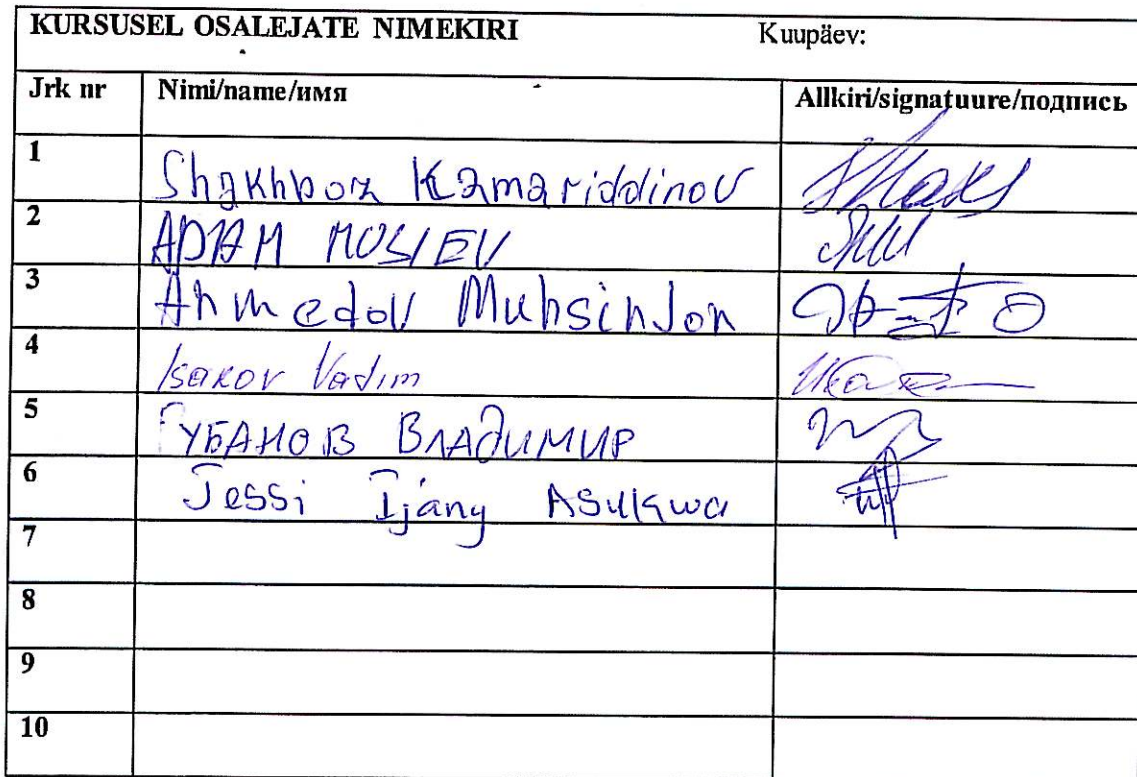 KURSUSEL OSALEJATE NIMEKIRI Kuupäev:
Jrk nr Nimi/name/имя Allkiri/signatuure/подпись
1 Shakhboz Kamariddinov
2
3 Ahmedov MuhsinJon
4 Isakov Vadim
5 ГУБАНОВ ВЛАДИМИР
6 Jessi Ijany Asukwa
7
8
9
10